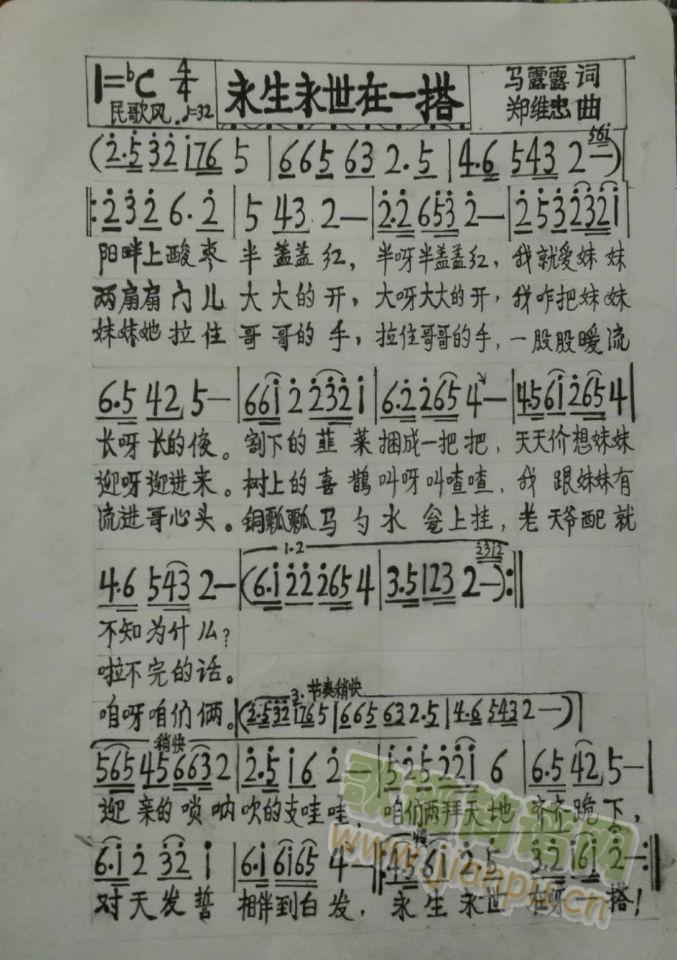 1=♭C 4/4 永生永世在一搭 马露露 词
民歌风 ♩=32 郑维忠 曲
(2·5 32 176 5 | 665 63 2·5 | 4·6 543 2 —)
‖: 2 3 2 6·2 | 5 43 2— | 2·2 653 2— | 2 5 3 2 3 2 1
阳畔上酸枣 半盖盖红, 半呀半盖盖红, 我就爱妹妹
两扇扇门儿 大大的开, 大呀大大的开, 我咋把妹妹
妹妹她拉住 哥哥的手, 拉住哥哥的手, 一股股暖流
6·5 42 5— | 661 2 2321 | 6·2 265 4 | 4561 265 4 |
长呀长的俊。割下的韭菜捆成一把把, 天天价想妹妹
迎呀迎进来。树上的喜鹊叫呀叫喳喳, 我跟妹妹有
流进哥心头。铜瓢瓢马勺水瓮上挂, 老天爷配就
1·2 2312
4·6 543 2— | (6·1 22 265 4 | 3·5 123 2 —) :‖
不知为什么?
啦不完的话。
3. 节奏稍快
咱呀咱们俩。(2·532 176 5 | 665 63 2·5 | 4·6 543 2 —)
稍快
565 45 663 2 | 2·5 1 6 2— | 5 2 5 2 2 1 6 | 6·5 42 5— |
迎亲的唢呐吹的支哇哇, 咱们两拜天地 齐齐跪下,
6·1 2 32 1 | 6·1 6165 4 | ‖: 45 61 2·5 3·2 161 2— :‖
对天发誓 相伴到白发, 永生永世 在呀一搭!
歌谱简谱网
www.jianpu.cn